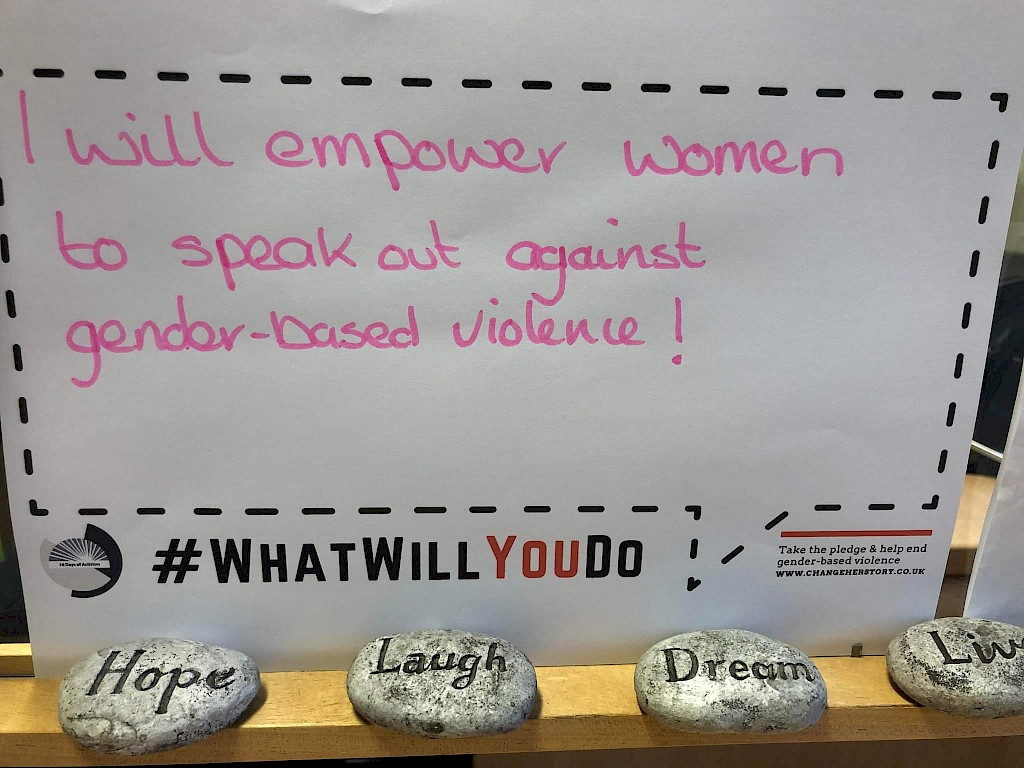 I will empower women
to speak out against
gender-based violence!
16 Days of Activism
#WHATWILLYOUDO
Take the pledge & help end
gender-based violence
WWW.CHANGEHERSTORY.CO.UK
Hope
Laugh
Dream